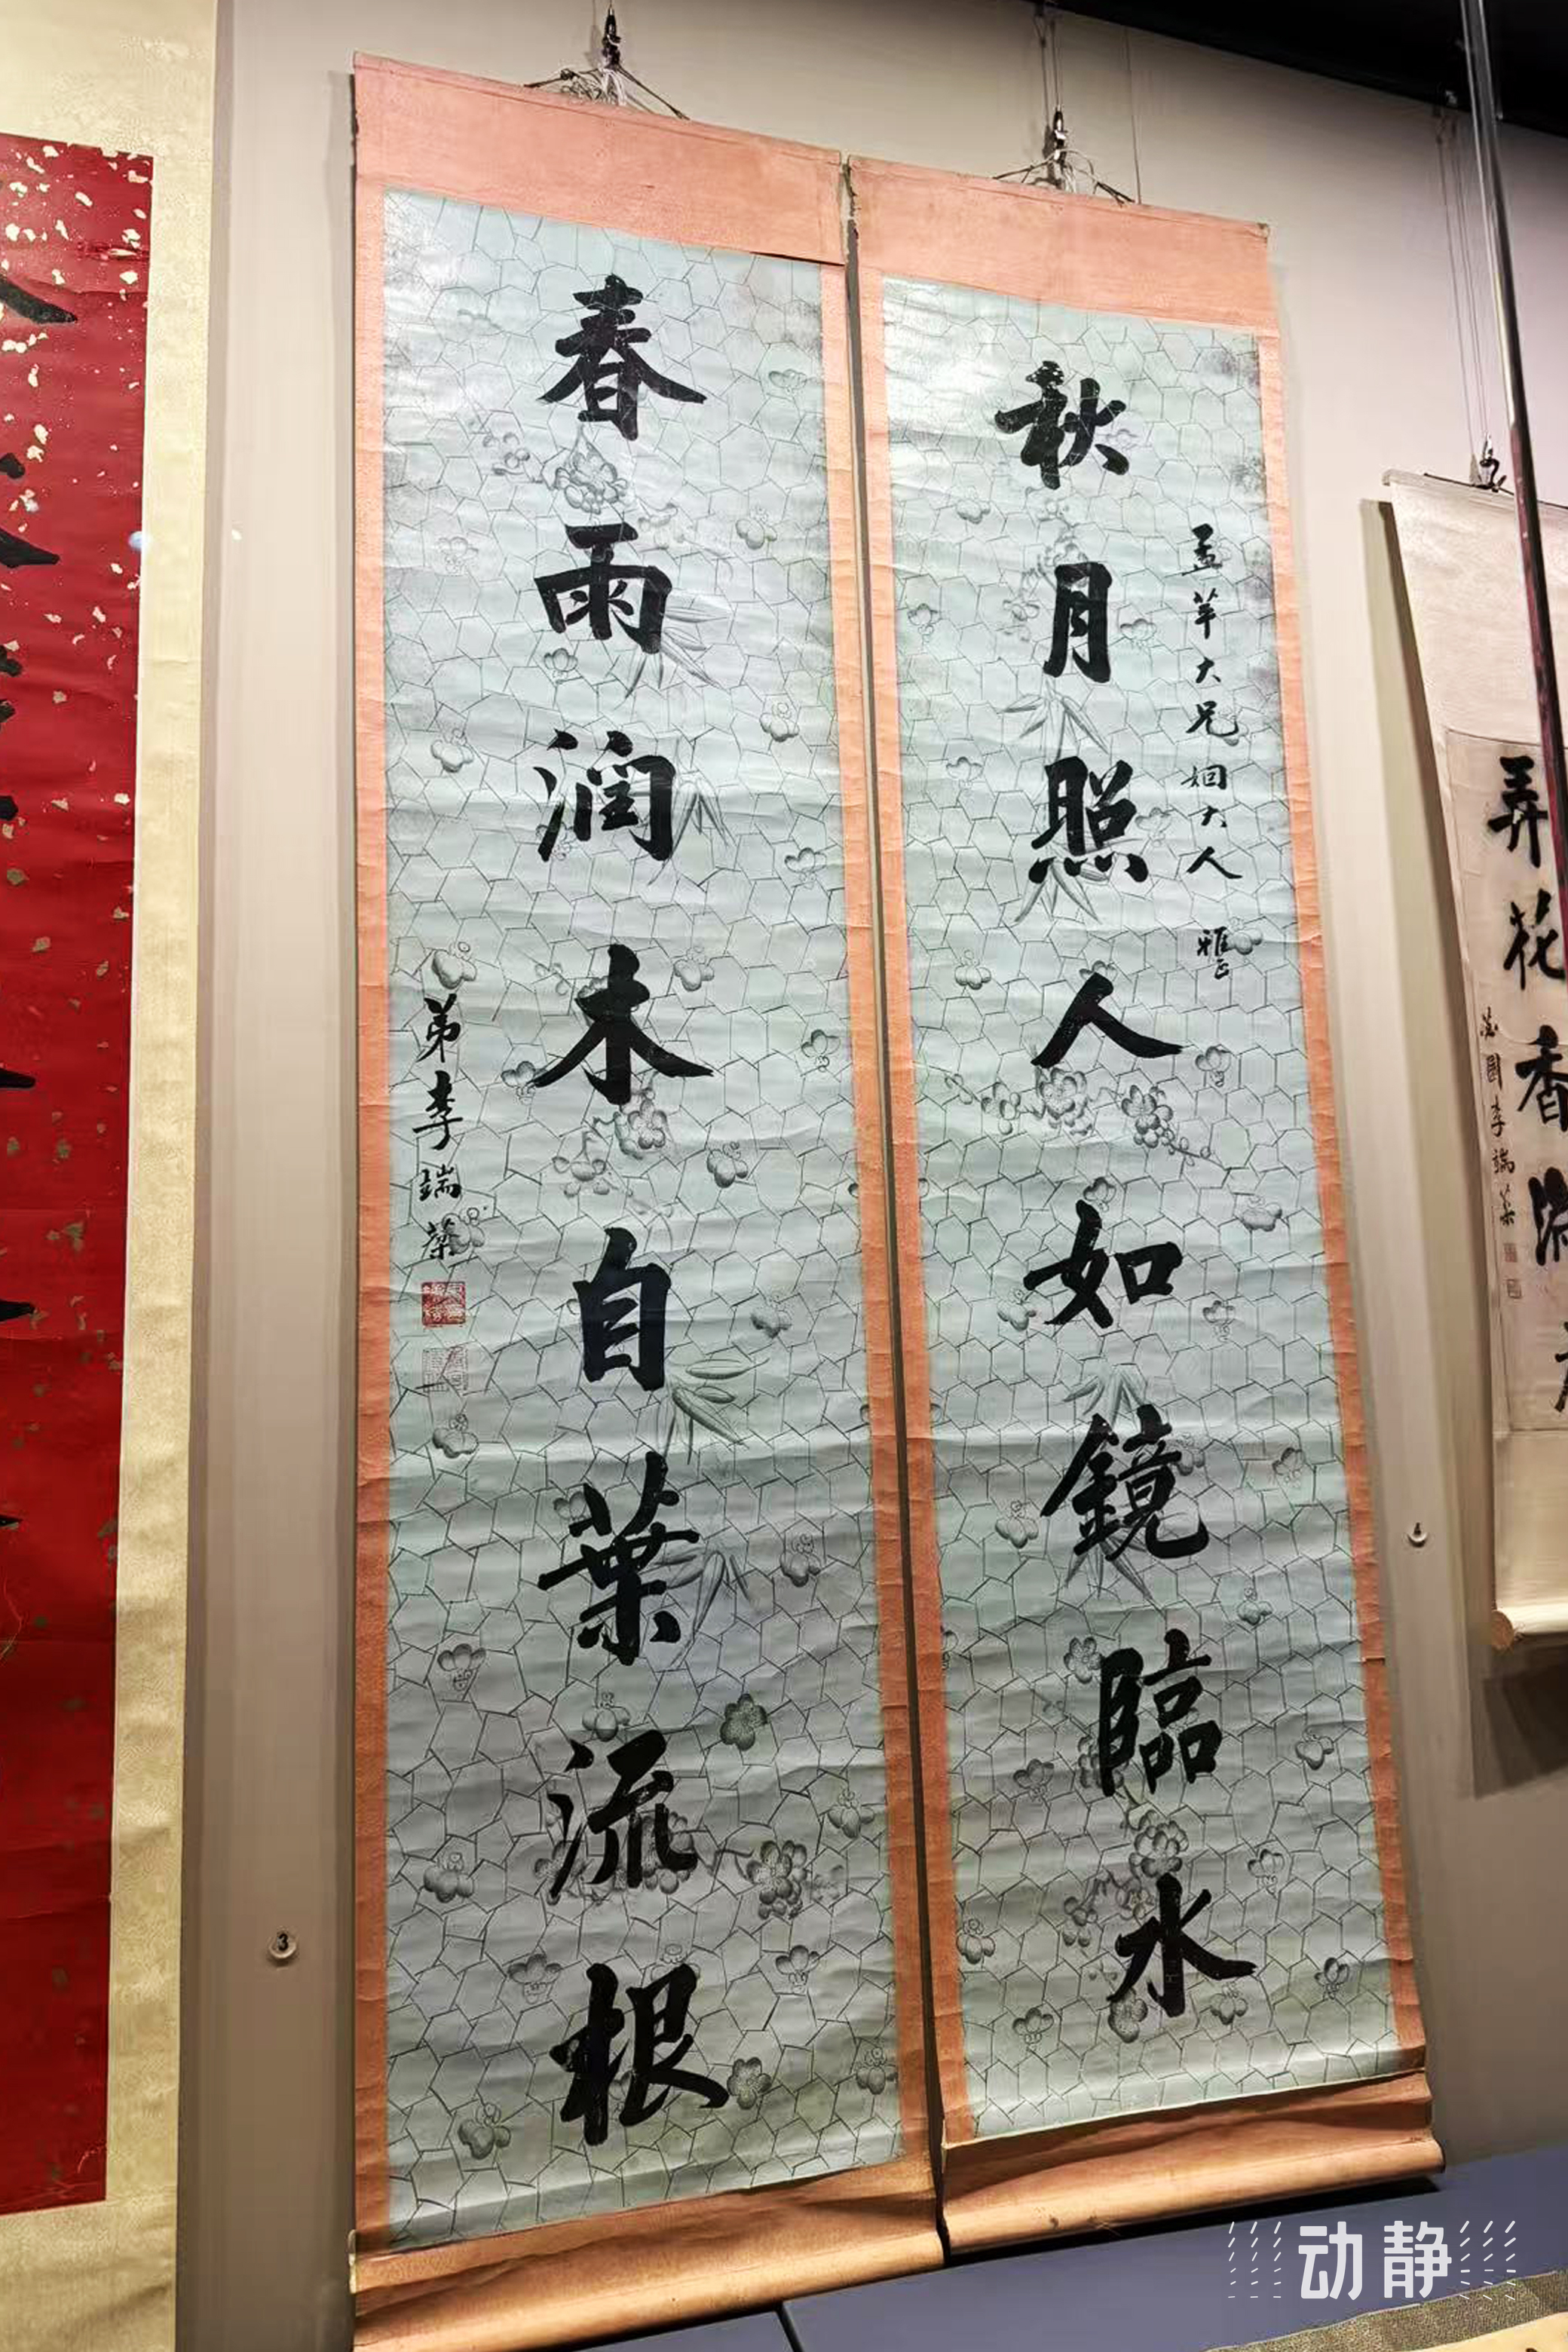 秋月照人如鏡臨水
孟芊大兄姻大人 雅正
春雨潤木自葉流根
弟李端棻
弄花香滿
苾園李端棻
3
4
动静